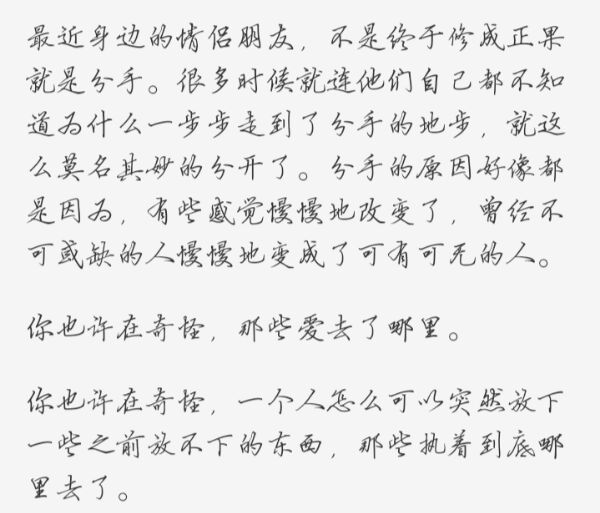 最近身边的情侣朋友，不是终于修成正果
就是分手。很多时候就连他们自己都不知
道为什么一步步走到了分手的地步，就这
么莫名其妙的分开了。分手的原因好像都
是因为，有些感觉慢慢地改变了，曾经不
可或缺的人慢慢地变成了可有可无的人。
你也许在奇怪，那些爱去了哪里。
你也许在奇怪，一个人怎么可以突然放下
一些之前放不下的东西，那些执着到底哪
里去了。